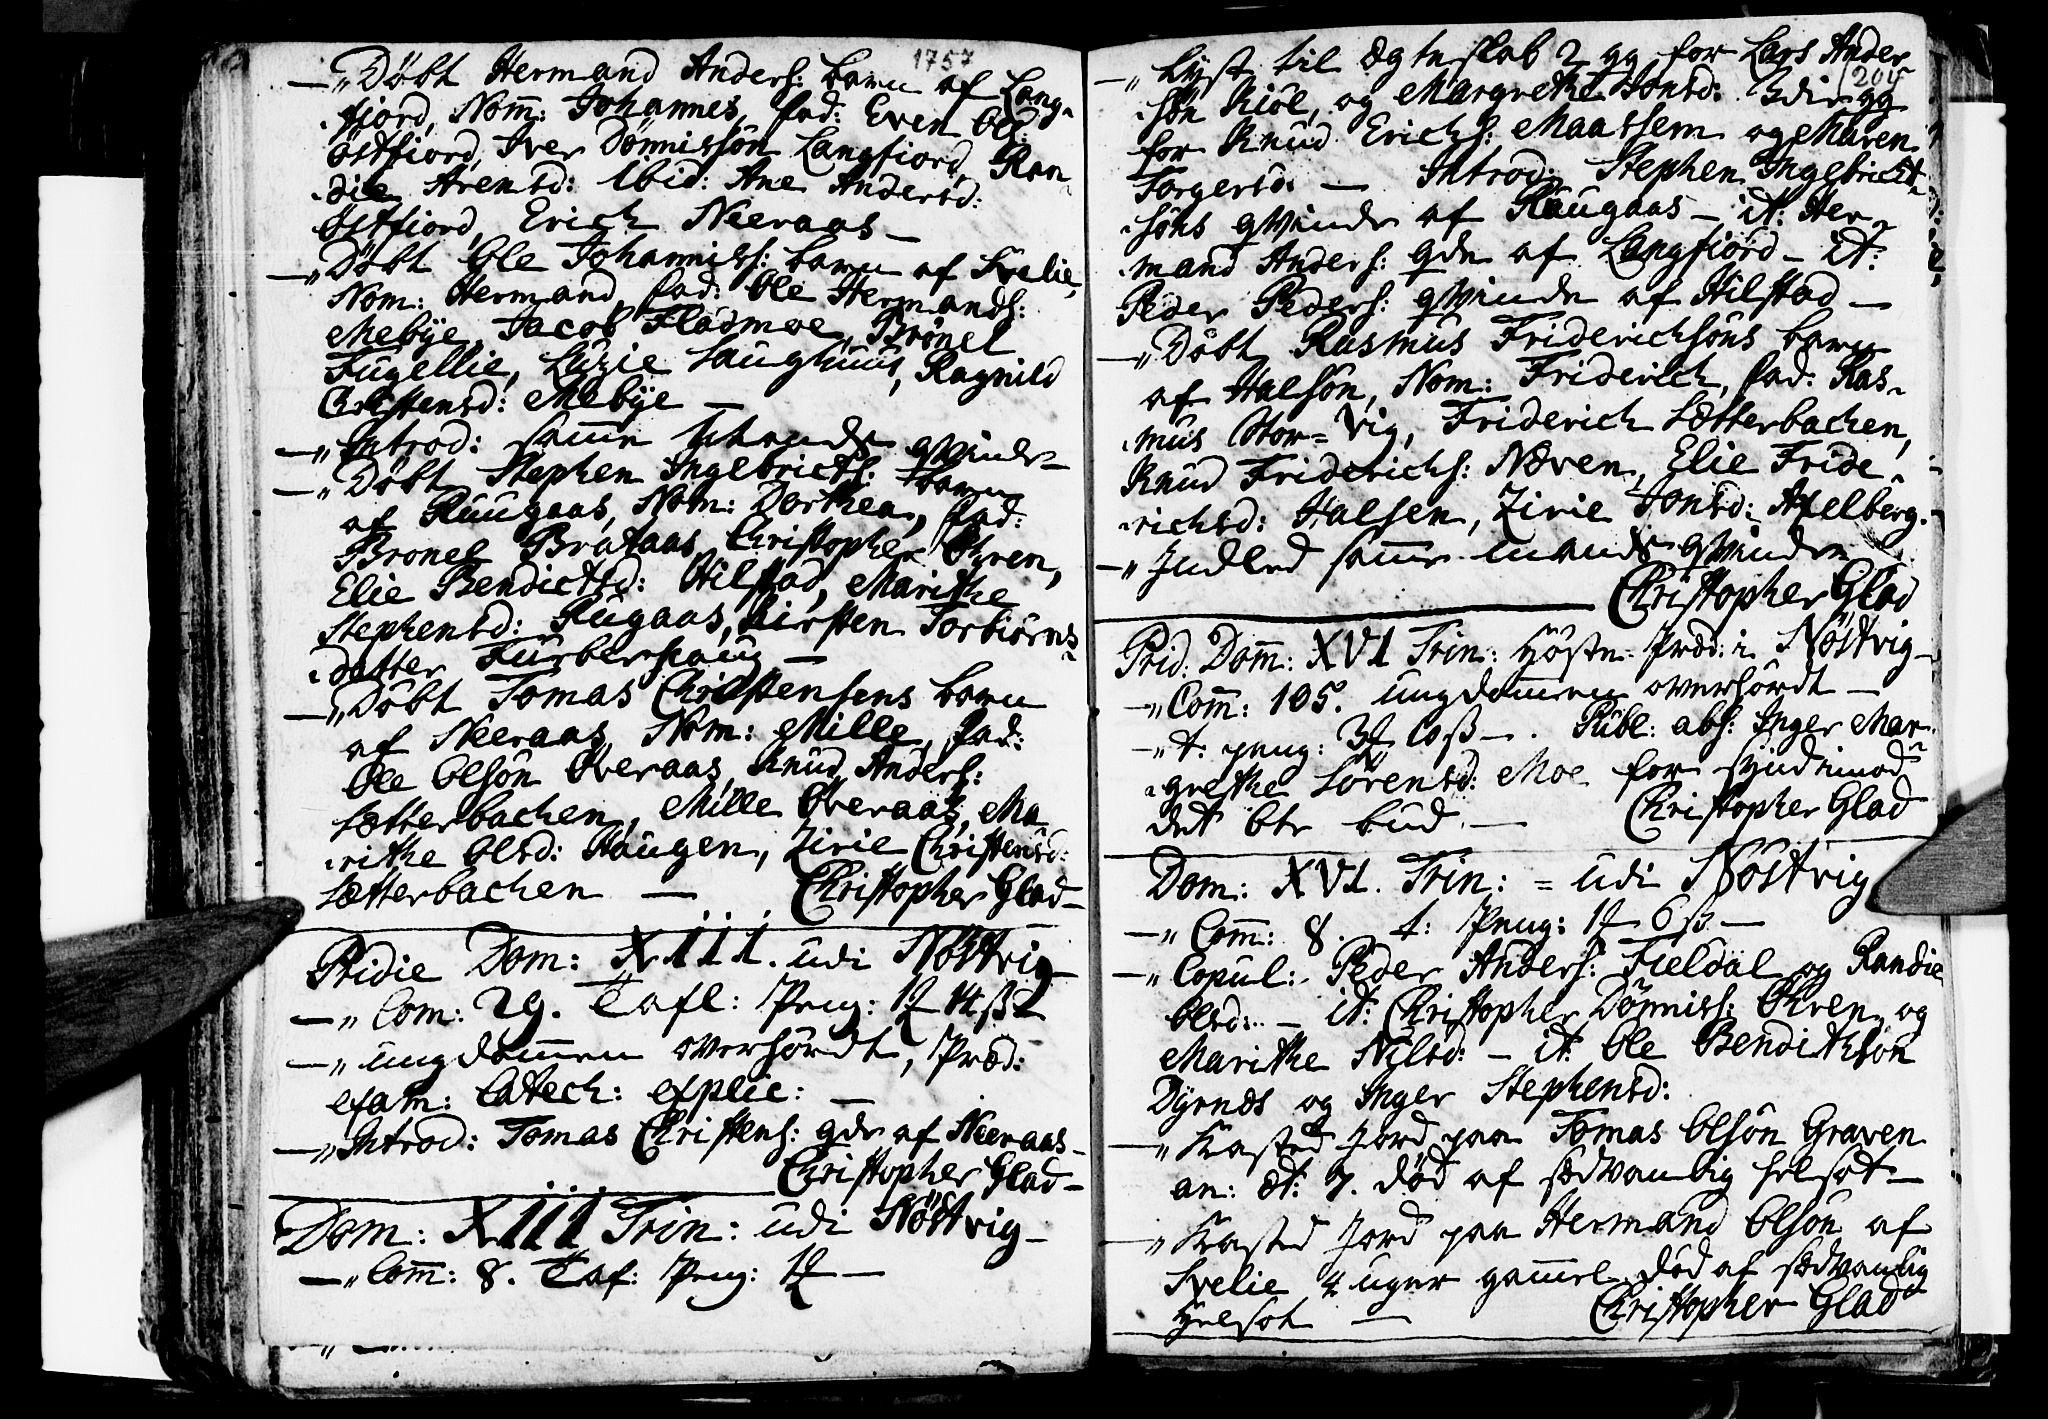 1757
— „ Döbt Hermand Anders: barn af Lang-
fiord, Nom: Johannes, fad: Even Ols:
Östfiord, Iver Dönnissön Langfiord, Ran-
die Arensd: Ibid: Ane Andersd:
Östfiord, Erich Neeraas —
— „ Döbt Ole Johanniss: barn af Svelie,
Nom: Hermand, fad: Ole Hermands:
Mebÿe, Jacob Fladmoe, Brönel
Fugellie, Luzie Laughuus, Ragnild
Christensd: Mebÿe —
— „ Introd: samme Mands qvinde —
— „ Döbt Stephen Ingebrictss: barn
af Ruugaas, Nom: Dorthea, fad:
Bronel Brataas, Christopher Øhren,
Elie Bendictsd: Hilstad, Marithe
Stephensd: Rugaas, Kirsten Torbiörns-
datter Furberhaug —
— „ Döbt Tomas Christensens barn
af Neeraas, Nom: Mille, fad:
Ole Olsön Överaas, Knud Anders:
Sætterbachen, Mille Överaas, Ma-
rithe Olsd: Haugen, Zirie Christensd:
Sætterbachen — Christopher Glad —
Pridie Dom: XIII. udi Nöstvig —
— „ Com: 29. Tafl: Peng: 1 14 ß
— „ ungdommen overhördt, Præd:
exam: Catech: explic: —
— „ Introd: Tomas Christens: qde af Neeraas —
Christopher Glad —
Dom: XIII Trin: udi Nöstvig —
— „ Com: 8. Taf: Peng: 1 —
204
— „ Lyst til Ægteskab 2 gg for Lars Ander
sön Kiöl, og Margrethe Jonsd: 3die gg
for Knud Erichs: Maassem og Maren
Torgersd: — Introd: Stephen Ingebrict-
söns qvinde af Raugaas — it: Her-
mand Anders: qde af Langfiord — it:
Peder Peders: qvinde af Hilstad —
— „ Döbt Rasmus Friderichsöns barn
af Halsön, Nom: Friderich, fad: Ras-
mus Stor=Vig, Friderich Sætterbachen,
Knud Friderichs: Næven, Elie Fride-
richsd: Halsen, Zirie Jonsd: Axelberg.
— „ Indled samme mands qvinde
Christopher Glad
Prid: Dom: XVI Trin: Höste Præd: i Nöstvig —
— „ Com: 105. ungdommen overhördt —
— „ t: peng: 3 10 ß — . Publ: abs: Inger Mar-
grethe Sörensd: Moe for synd imod
det 6te bud. — Christopher Glad
Dom: XVI. Trin: = udi Nöstvig
— „ Com: 8. t: Peng: 1 6 ß —
— „ Copul: Peder Anders: Fieldal og Randie
Olsd: — it: Christopher Dönniss: Øhren og
Marithe Nilsd: — it: Ole Bendichsön
Dyrnæs og Inger Stephensd:
— „ Kasted Jord paa Tomas Olsön Graven
an: æt: 7. död af sædvanlig helsot —
— „ Kasted Jord paa Hermand Olsön af
Svelie 4 uger gammel död af sædvanlig
Helsot — Christopher Glad